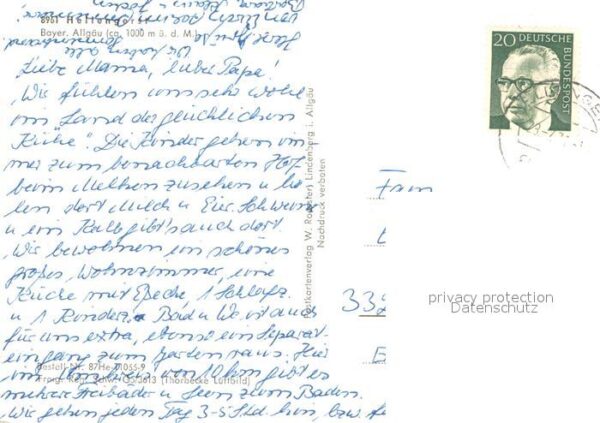 8961 Hellengerst
Bayer. Allgäu (ca. 1000 m ü. d. M.)
Liebe Mama, lieber Papa!
Wir fühlen uns sehr wohl
im Land der glücklichen
Kühe". Die Kinder gehen im
mer zum benachbarten Hof
beim Melken zusehen u. ho
len dort Milch u. Eier. Schweine
u ein Kalb gibt's auch dort.
Wir bewohnen ein schönes
großes Wohnzimmer, eine
Küche mit Eßecke, 1 Schlafz.
u 1 Kinderz. Bad u Wc ist auch
für uns extra, ebenso ein Separat
eingang zum Garten raus. Hier
im Umkreis von 10 km gibt es
mehrere Freibäder u Seen zum Baden.
Wir gehen jeden Tag 3-5 Std. hin, bzw.
Bestell-Nr. 87He-11055-9
(Thorbecke Luftbild)
Postkartenverlag W. Lindenberg i. Allgäu
Nachdruck verboten
20 DEUTSCHE
BUNDESPOST
33
privacy protection
Datenschutz